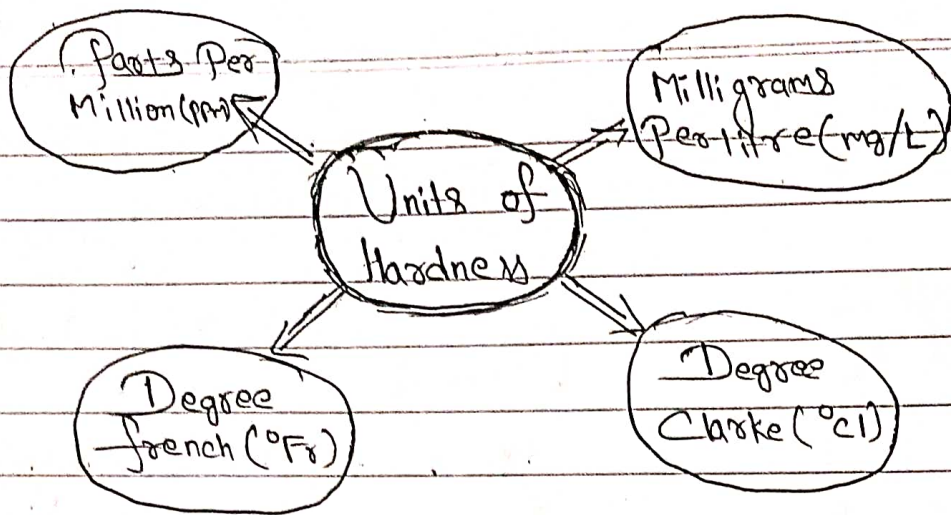 Parts Per
Million (ppm)
Milligrams
Per litre (mg/L)
Units of
Hardness
Degree
french (°Fr)
Degree
Clarke (°Cl)